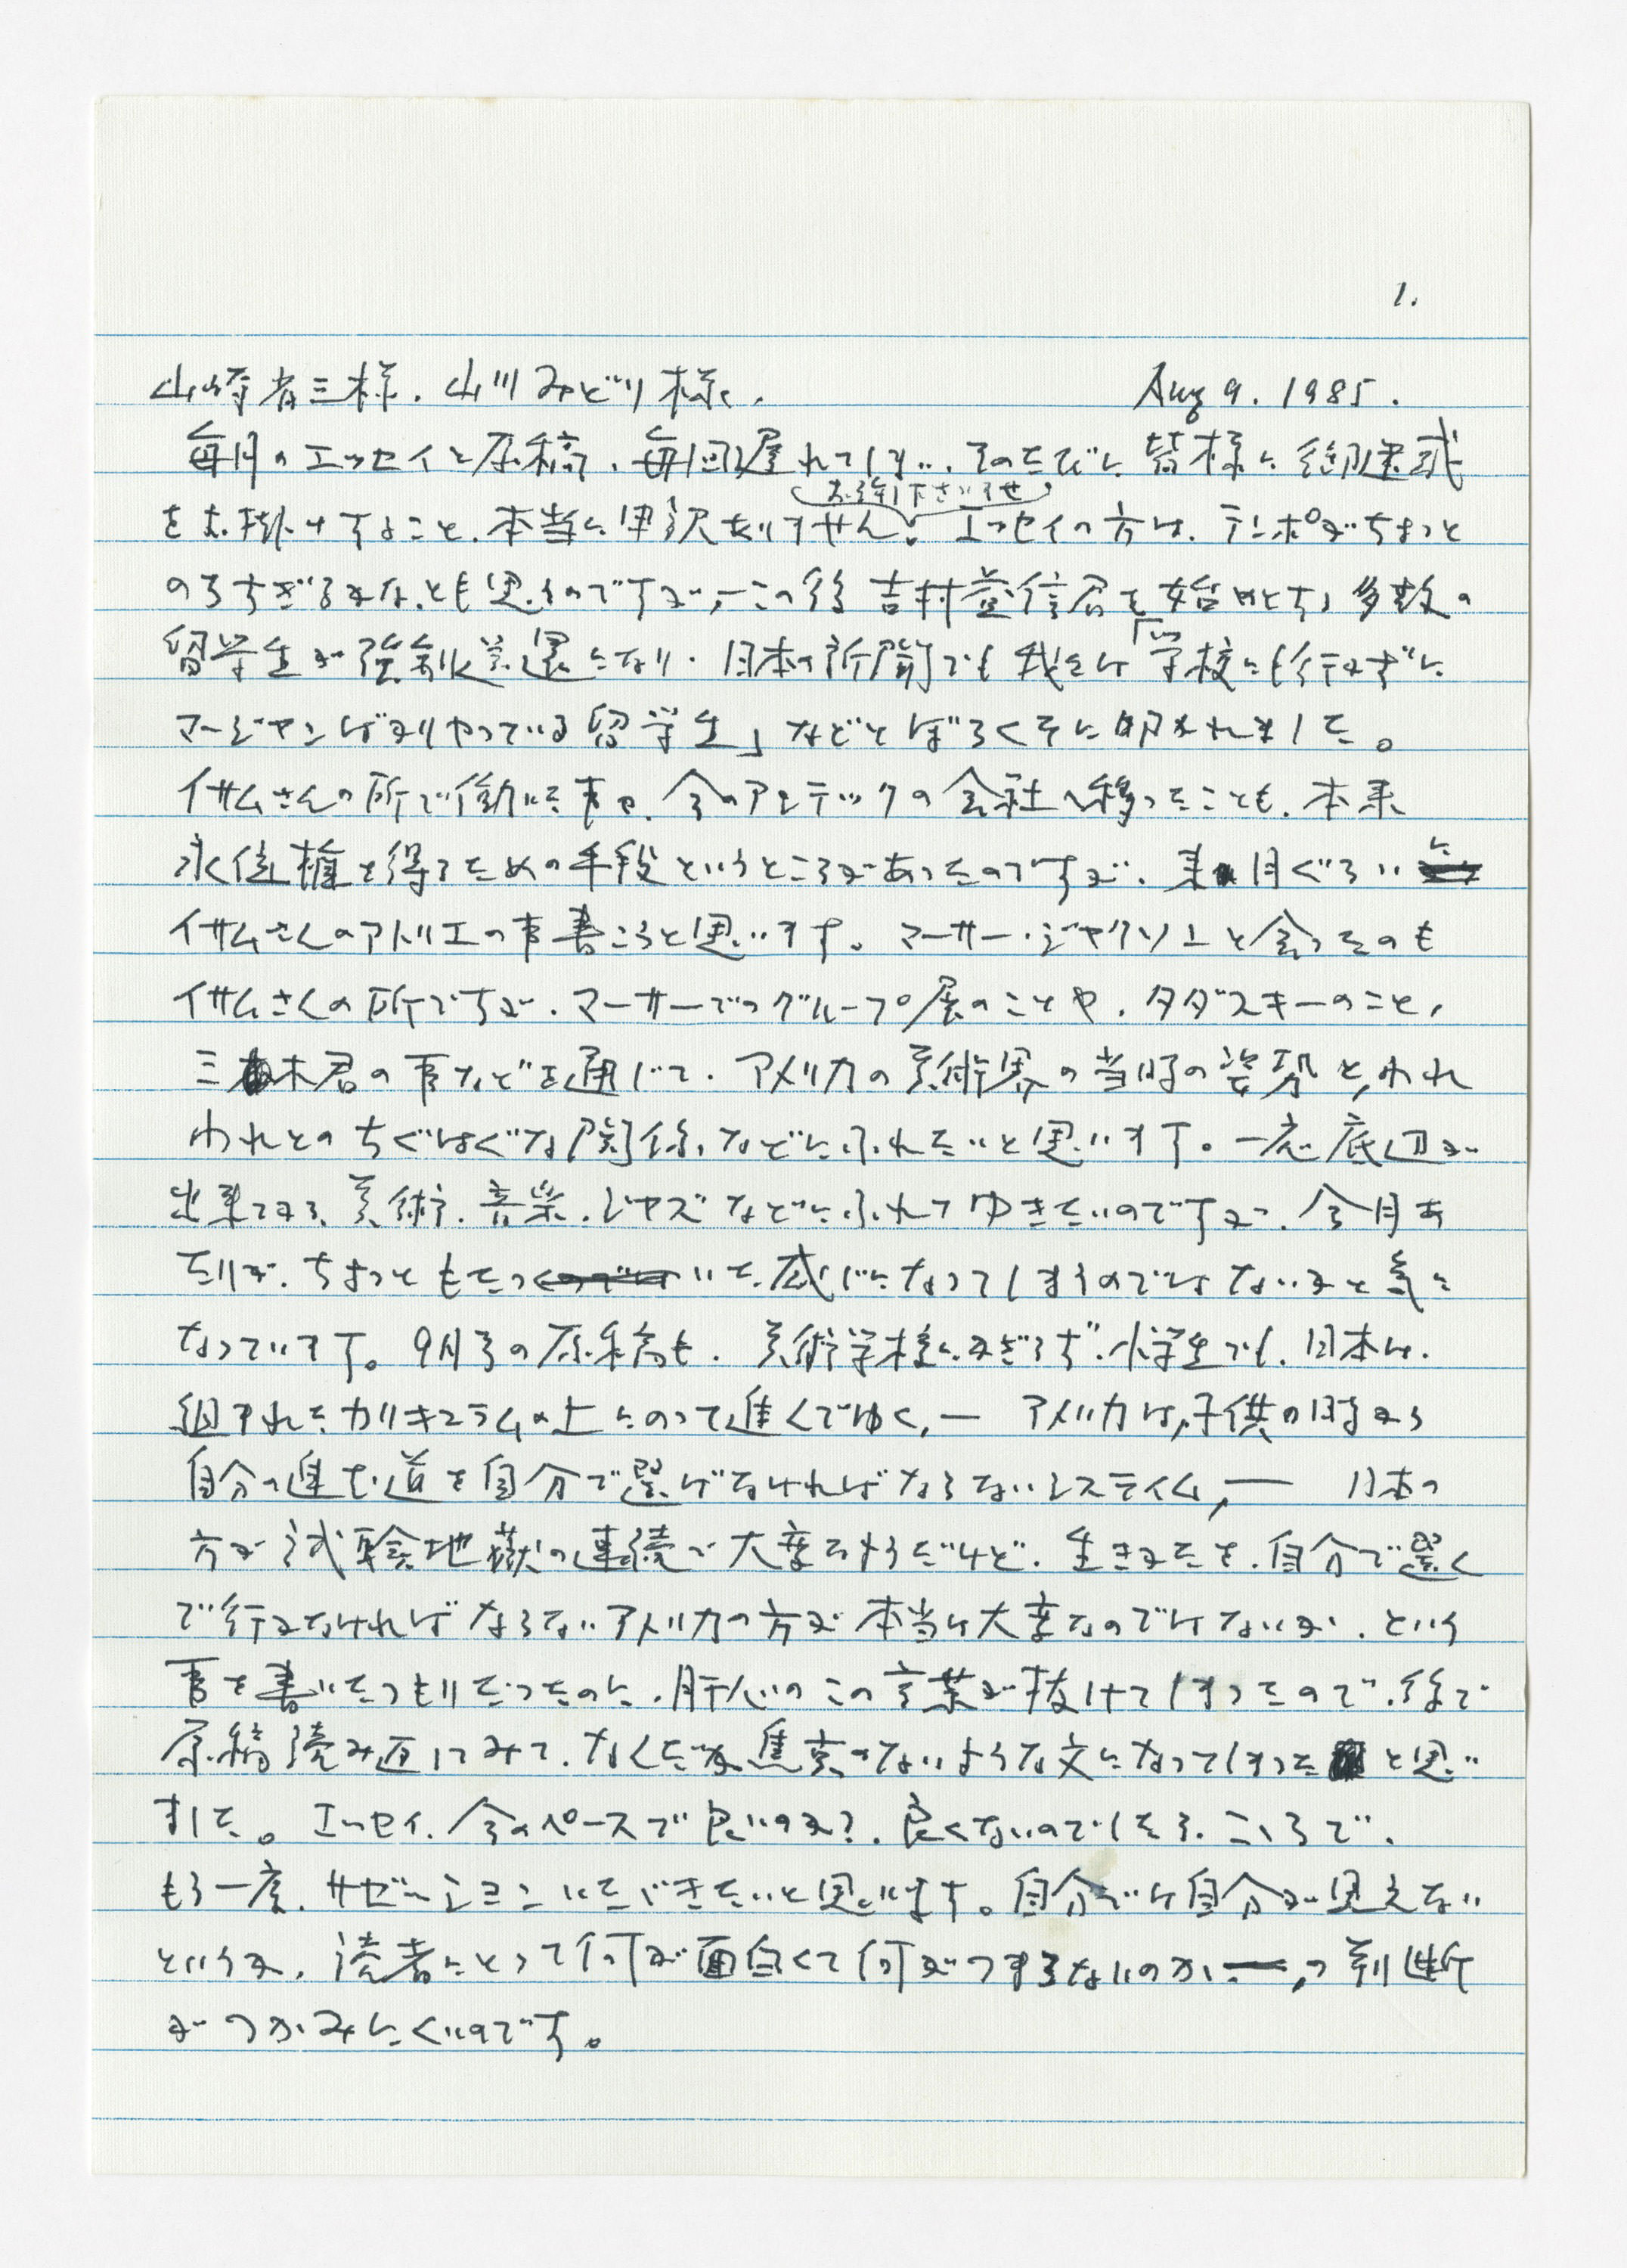 1.
山崎省三様．山川みどり様， Aug 9. 1985.
毎月のエッセイと原稿，毎回遅れてしまい，そのたびに皆様に
をお掛けすること，本当に申訳ありません。エッセイの方は，テンポがちょっと
お許し下さいませ
のろすぎるかな，とも思うのですが，—この後 吉村益信君を始めとし，多数の
留学生が強制送還になり．日本の新聞でも我々は「学校にも行かずに
マージャンばかりやっている留学生」などとぼろくそに叩かれました。
イサムさんの所で働いた事や，今のアンテックの会社へ移ったことも，本来
永住権を得るための手段というところがあったのですが，来月ぐらいに
イサムさんのアトリエの事書こうと思います。マーサー・ジャクソンと会ったのも
イサムさんの所ですが．マーサーでのグループ展のことや，タダスキーのこと，
三木君の事などを通じて．アメリカの美術界の当時の姿勢と，われ
われとのちぐはぐな関係，などにふれたいと思います。一応底辺が
出来てから，美術，音楽，ジャズなどにふれてゆきたいのですが，今月あ
たりが，ちょっともたついた感じになってしまうのではないかと気に
なっています。9月号の原稿も．美術学校にかぎらず，小学生でも，日本は，
組まれたカリキュラムの上にのって進んでゆく，— アメリカは，子供の時から
自分の進む道を自分で選ばなければならないシステイム，— 日本の
方が試験地獄の連続で大変そうだけど，生きかたを，自分で選ん
で行かなければならないアメリカの方が本当は大変なのではないか，という
事を書いたつもりだったのに，肝心のこの言葉が抜けてしまったので，後で
原稿読み返してみて，なんだか焦点のないような文になってしまったと思い
ました。エッセイ，今のペースで良いのか？．良くないのでしたら，ここらで，
もう一度，サゼッションいただきたいと思います。自分では自分が見えない
というか，読者にとって何が面白くて何がつまらないのか—，の判断
がつかみにくいのです。